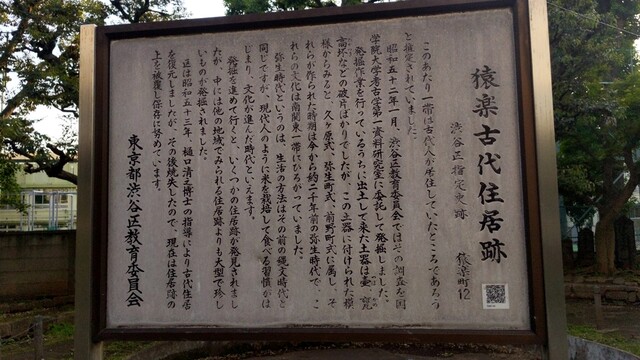 猿楽古代住居跡
渋谷区指定史跡　猿楽町12
このあたり一帯は古代人が居住していたところであろう
と推定されていました。
昭和五十二年一月、渋谷区教育委員会ではその調査を国
学院大学考古学第一資料研究室に委託して発掘しました。
発掘作業を行っているうちに出土して来た土器は壺、甕、
高坏などの破片ばかりでしたが、この土器に付けられた模
様からみると、久ヶ原式、弥生町式、前野町式に属し、そ
れらが作られた時期は今から約二千年前の弥生時代で、こ
れらの文化は南関東一帯にひろがっていました。
弥生時代というのは、生活の方法はその前の縄文時代と
同じですが、現代人のように米を栽培して食べる習慣がは
じまり、文化が進んだ時代といえます。
発掘を進めて行くと、いくつかの住居跡が発見されまし
たが、中には他の地域でみられる住居跡よりも大型で珍し
いものが発掘されました。
区は昭和五十三年、樋口清之博士の指導により古代住居
を復元しましたが、その後焼失したので、現在は住居跡の
上を被覆し保存に努めています。
東京都渋谷区教育委員会